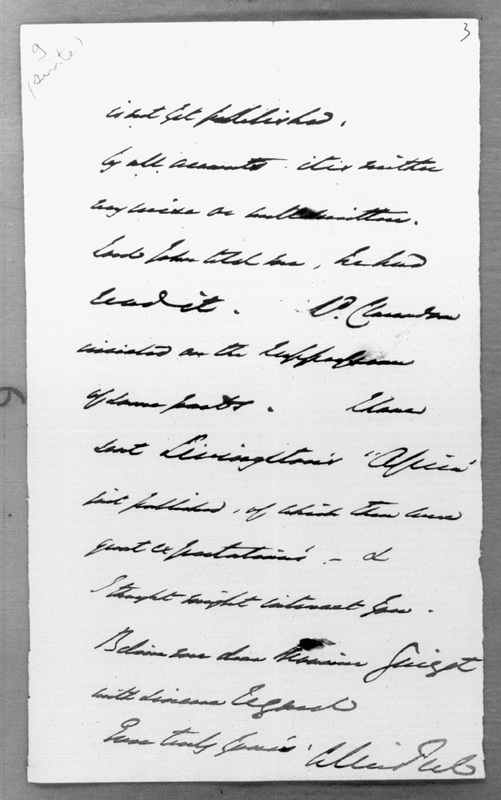 9
(suite)
3
is not yet published.
by all accounts it is neither
very wise or well written.
Lord John told me, he had
read it. Ld. Clarendon
insisted on the suppression
of some parts. I have
sent Livingston's "Africa"
just published, of which there were
great expectations - &
I thought might interest you.
Believe me dear Monsieur Guizot
with sincere regard
Yours truly yours